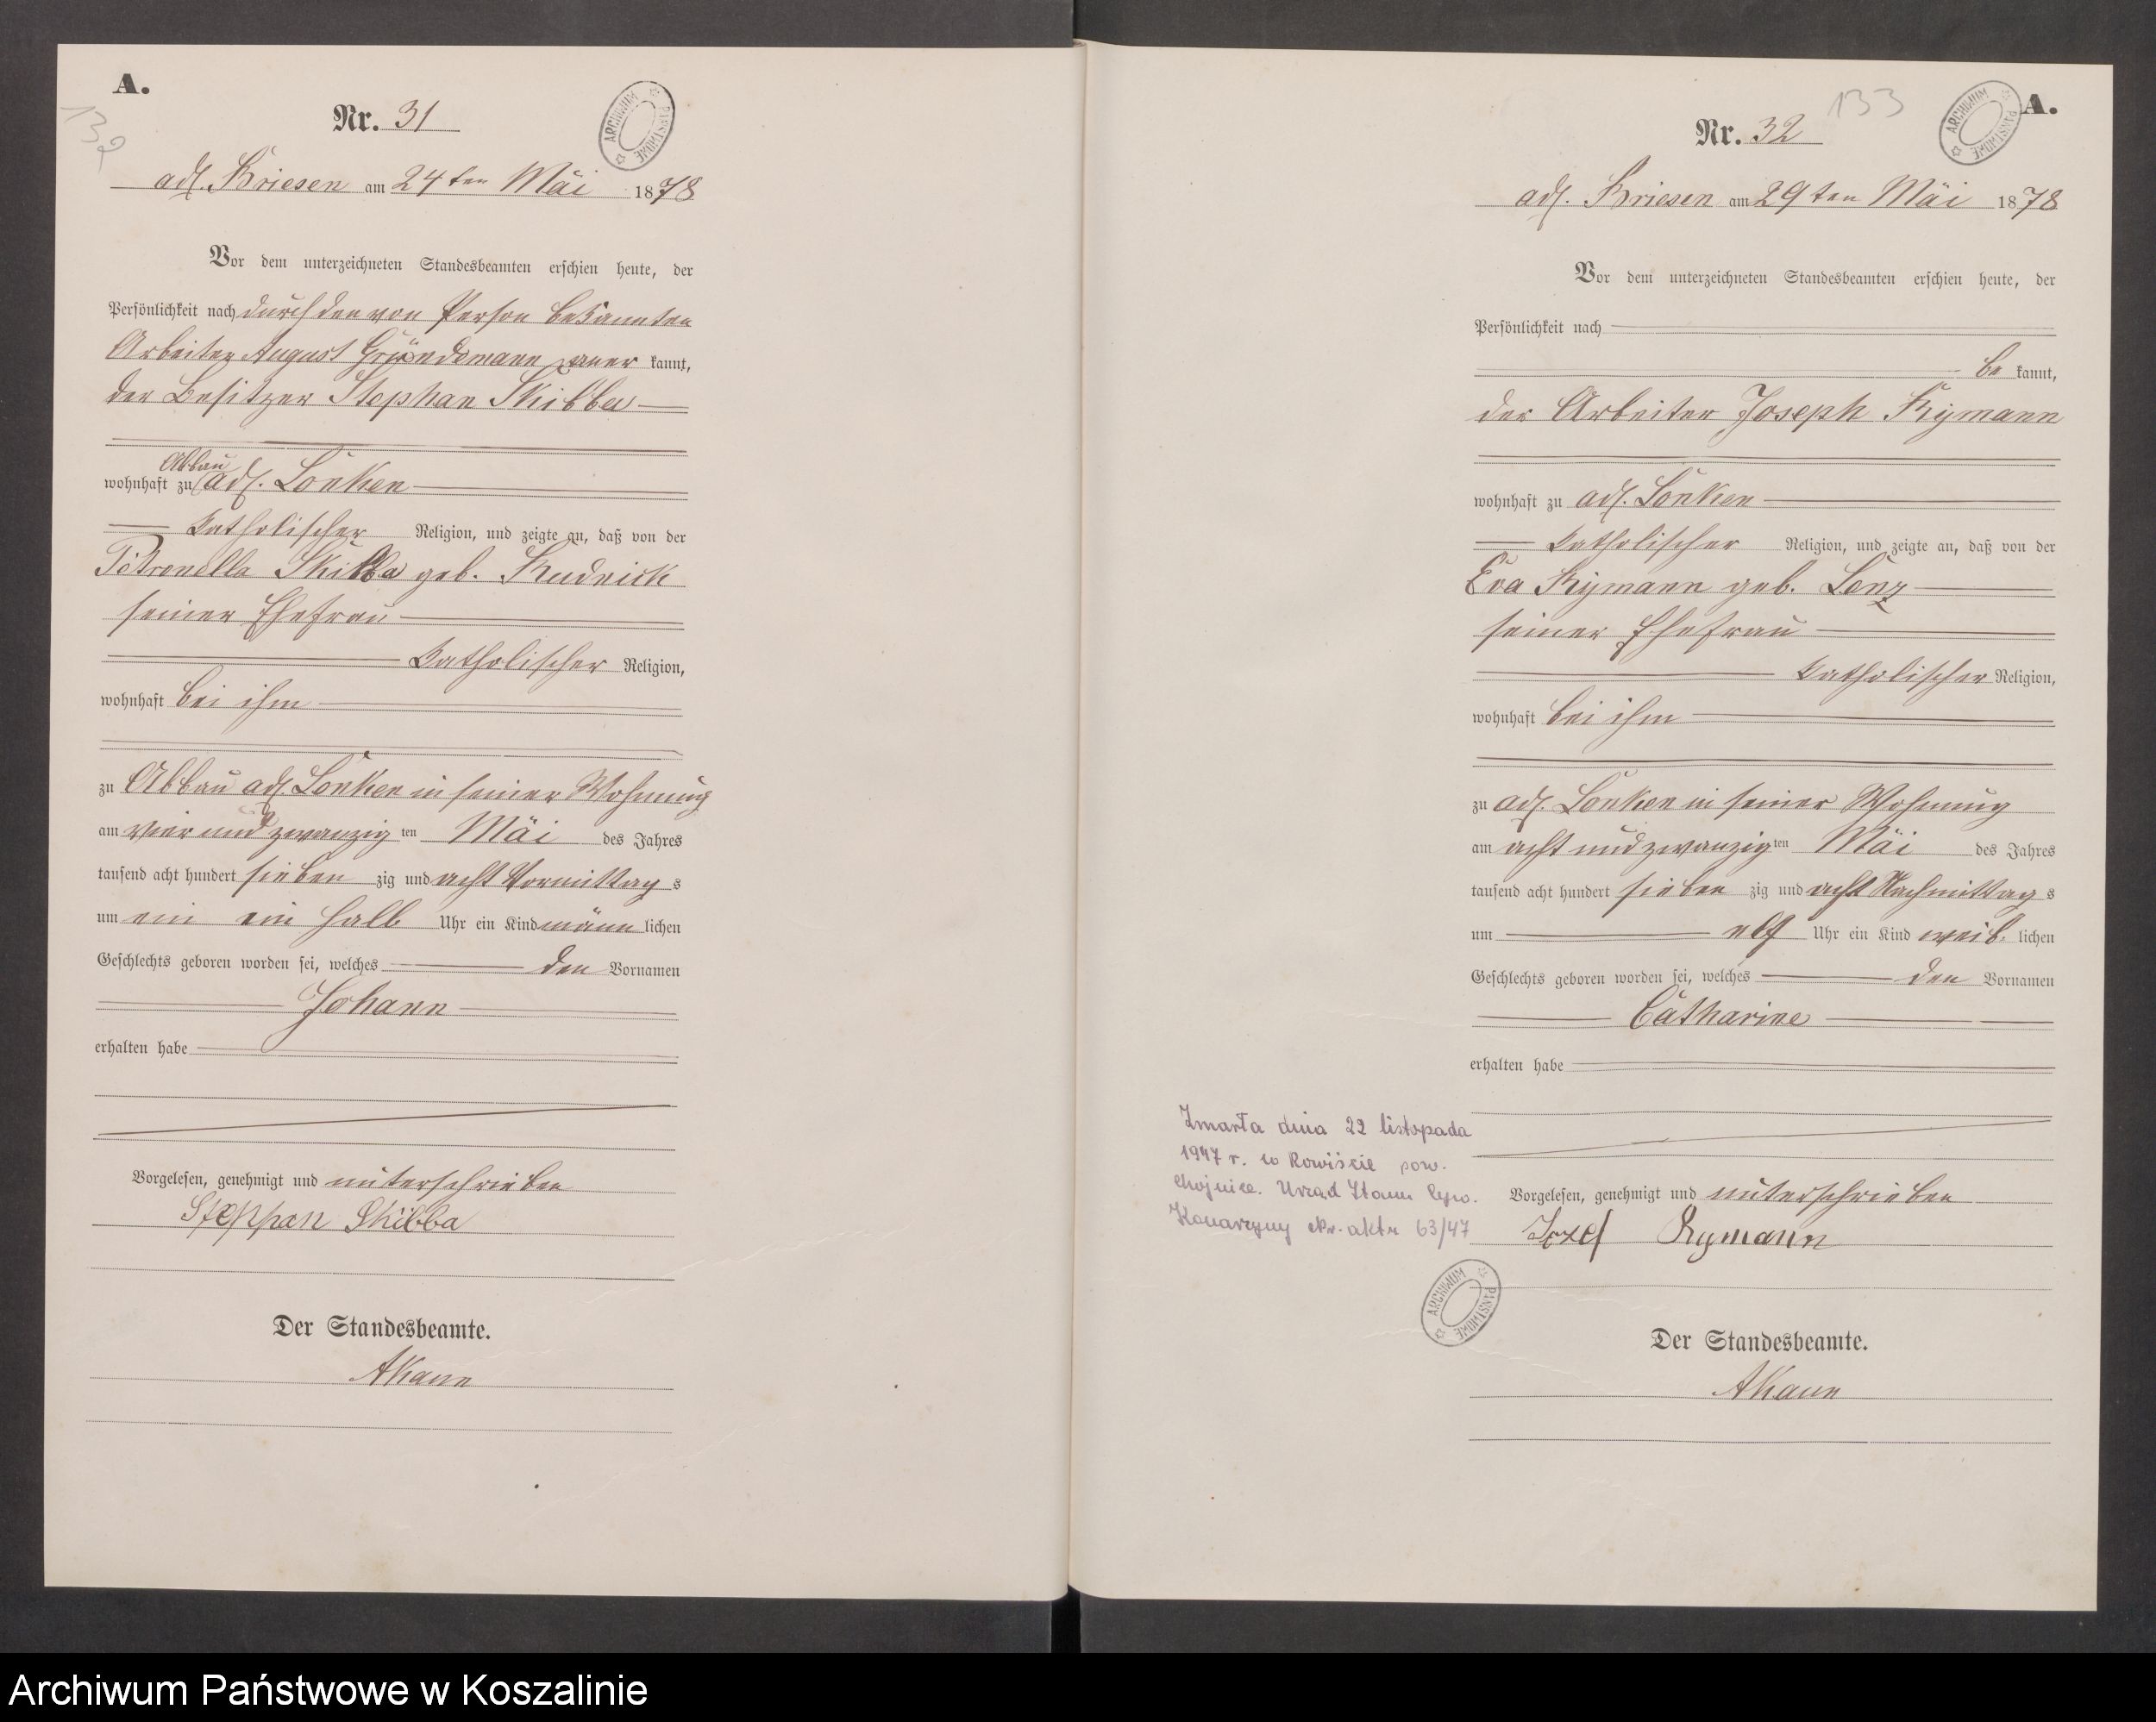 A.
132
Nr. 31
ARCHIWUM PAŃSTWOWE
adl. Briesen am 24ten Mai 1878
Vor dem unterzeichneten Standesbeamten erschien heute, der
Persönlichkeit nach durch den von Person bekannten
Arbeiter August Gründemann aner kannt,
der Besitzer Stephan Skibba
Abbau
wohnhaft zu adl. Lonken
katholischer Religion, und zeigte an, daß von der
Petronella Skibba geb. Rudnick
seiner Ehefrau
katholischer Religion,
wohnhaft bei ihm
zu Abbau adl. Lonken in seiner Wohnung
am vier und zwanzig ten Mai des Jahres
tausend acht hundert sieben zig und acht Vormittag s
um ein ein halb Uhr ein Kind männ lichen
Geschlechts geboren worden sei, welches den Vornamen
Johann
erhalten habe
Vorgelesen, genehmigt und unterschrieben
Steppan Skibba
Der Standesbeamte.
AKann
133
A.
Nr. 32
ARCHIWUM PAŃSTWOWE
adl. Briesen am 29ten Mai 1878
Vor dem unterzeichneten Standesbeamten erschien heute, der
Persönlichkeit nach
be kannt,
der Arbeiter Joseph Rymann
wohnhaft zu adl. Lonken
katholischer Religion, und zeigte an, daß von der
Eva Rymann geb. Lenz
seiner Ehefrau
katholischer Religion,
wohnhaft bei ihm
zu adl. Lonken in seiner Wohnung
am acht und zwanzig ten Mai des Jahres
tausend acht hundert sieben zig und acht Nachmittag s
um elf Uhr ein Kind weib- lichen
Geschlechts geboren worden sei, welches den Vornamen
Catharine
erhalten habe
Zmarła dnia 22 listopada
1947 r. w Rowiście pow.
Chojnice. Urząd Stanu Cyw.
Konarzyny Nr. aktu 63/47
ARCHIWUM PAŃSTWOWE
Vorgelesen, genehmigt und unterschrieben
Jozef Rymann
Der Standesbeamte.
AKann
Archiwum Państwowe w Koszalinie